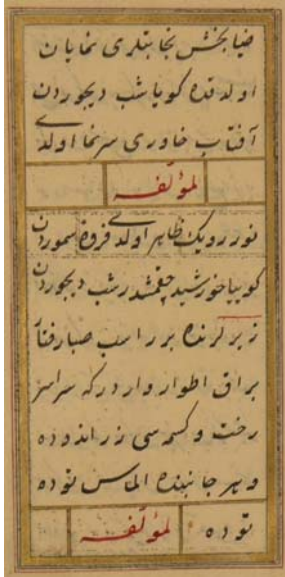 ضیابخش نجابتلری نمایان
اولدقده کویا شب دیجوردن
آفتاب خاوری سرنما اولدی
لمؤلفه
نور رویك ظاهر اولدی فروۀ سموردن
کوییا خورشید چقمشدر شب دیجوردن
زیرلرنده بر اسب صبارفتار
براق اطوار واردرکه سراسر
رخت و کسمه سی زراندوده
و هر جانبنده الماس توده
توده لمؤلفه